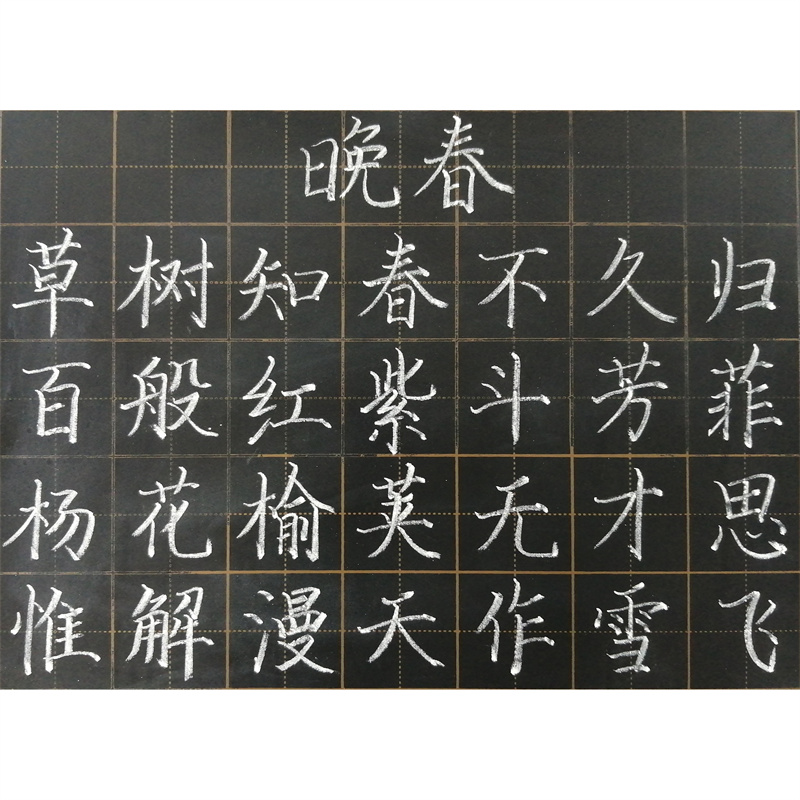 晚春
草树知春不久归
百般红紫斗芳菲
杨花榆荚无才思
惟解漫天作雪飞